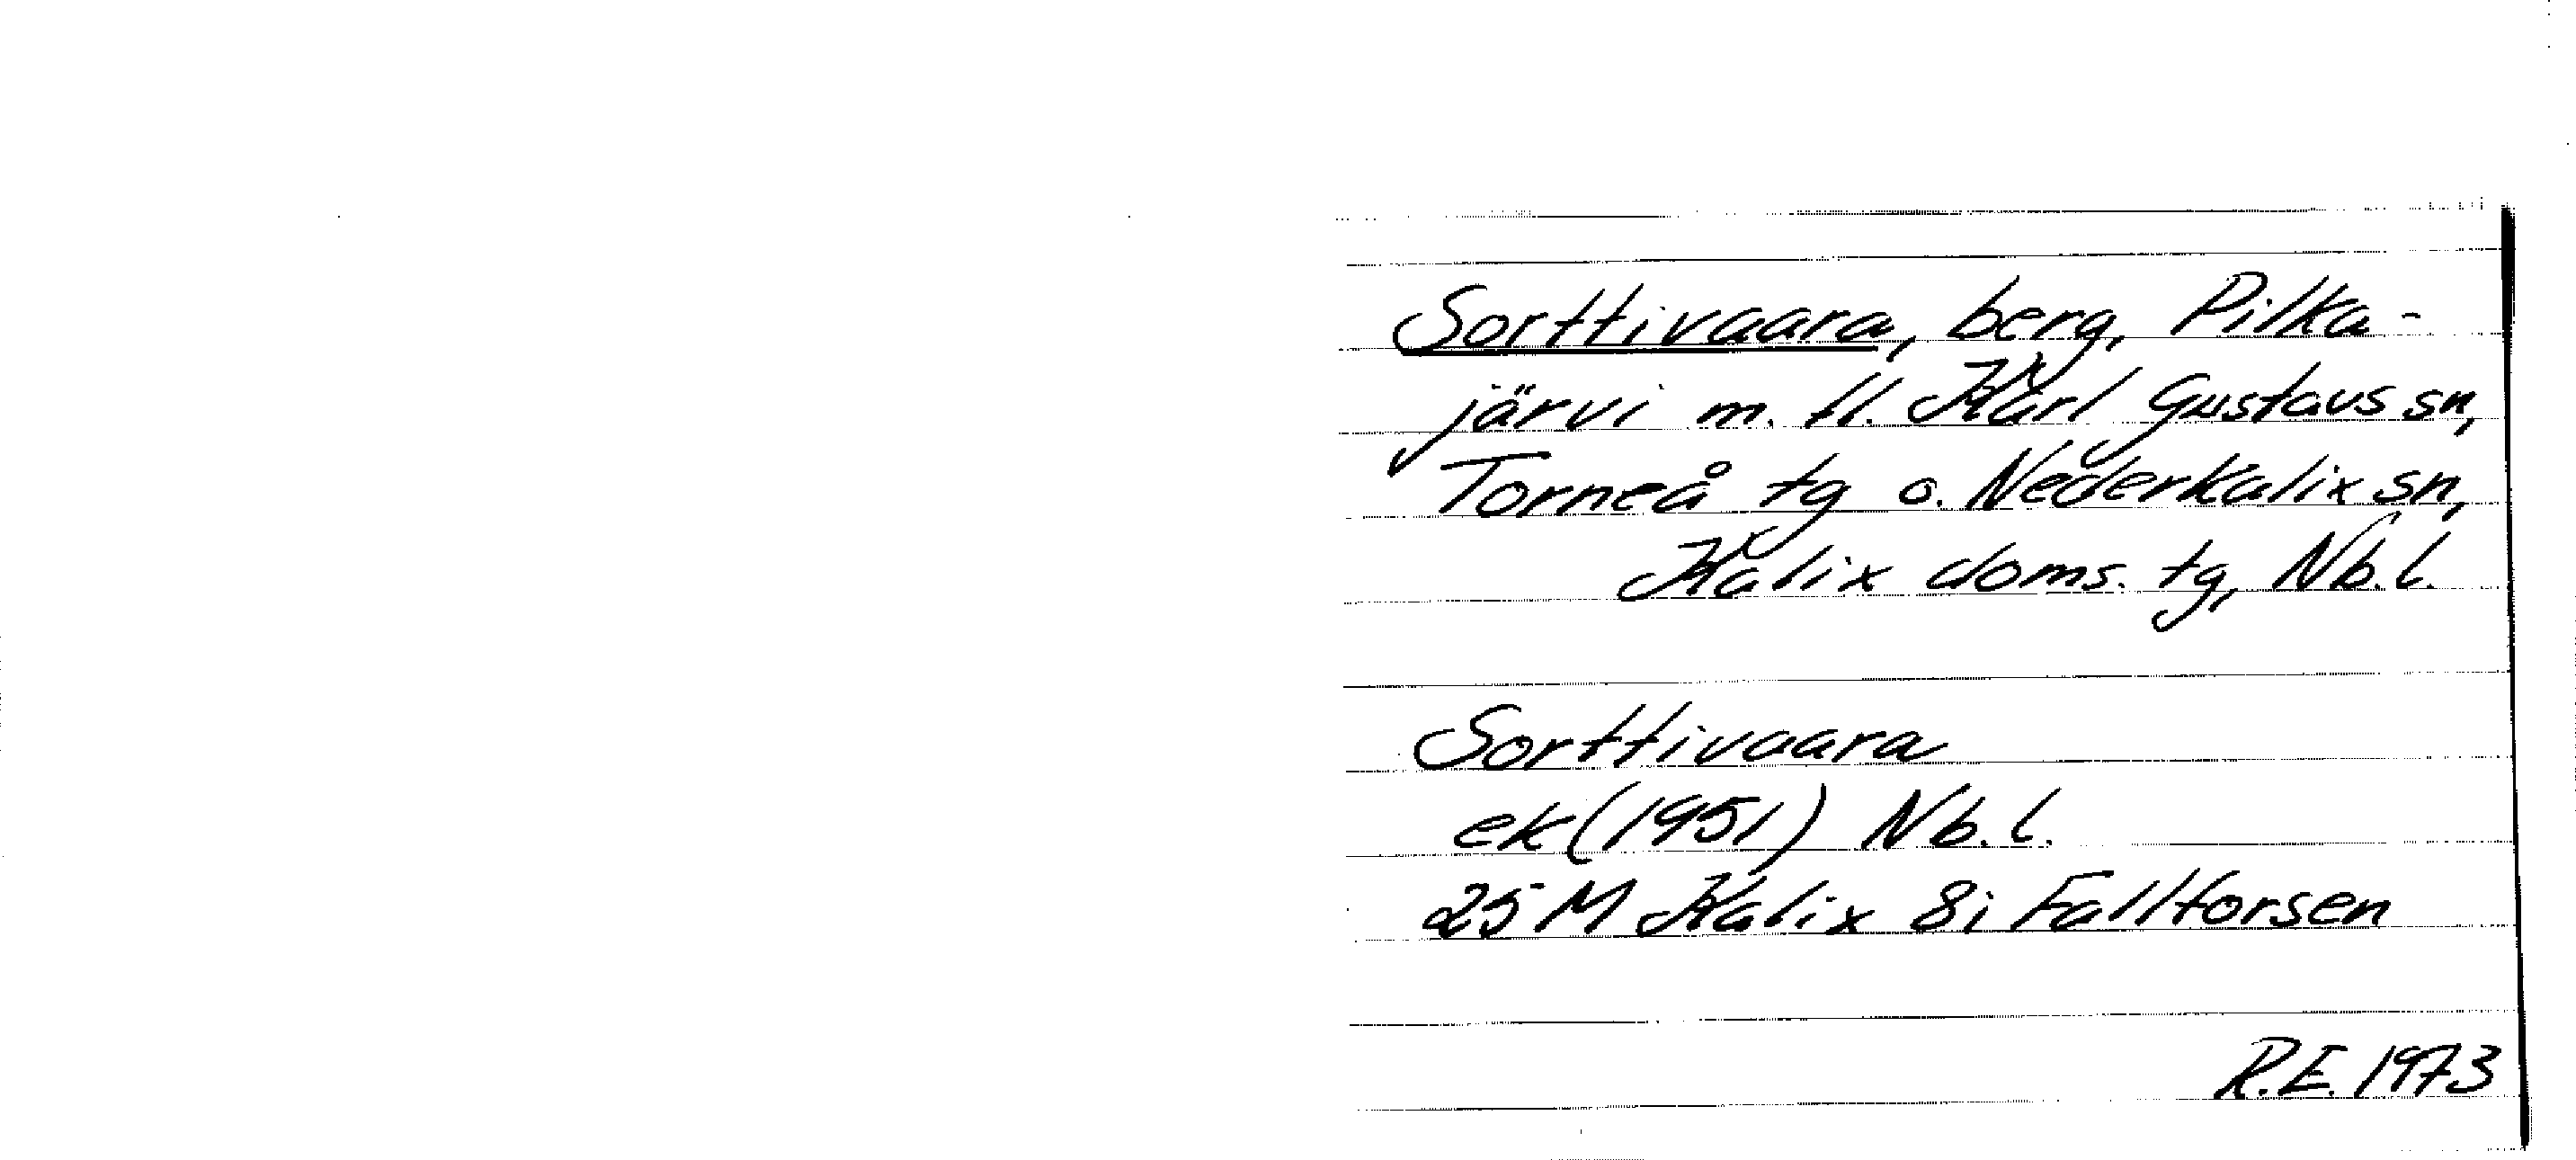 Sorttivaara, berg, Pilka-
järvi m. fl. Karl Gustavs sn,
Torneå tg o. Nederkalix sn,
Kalix doms. tg, Nb.l.
Sorttivaara
ek (1951) Nb.l.
25 M Kalix 8i Fallforsen
R.E. 1973